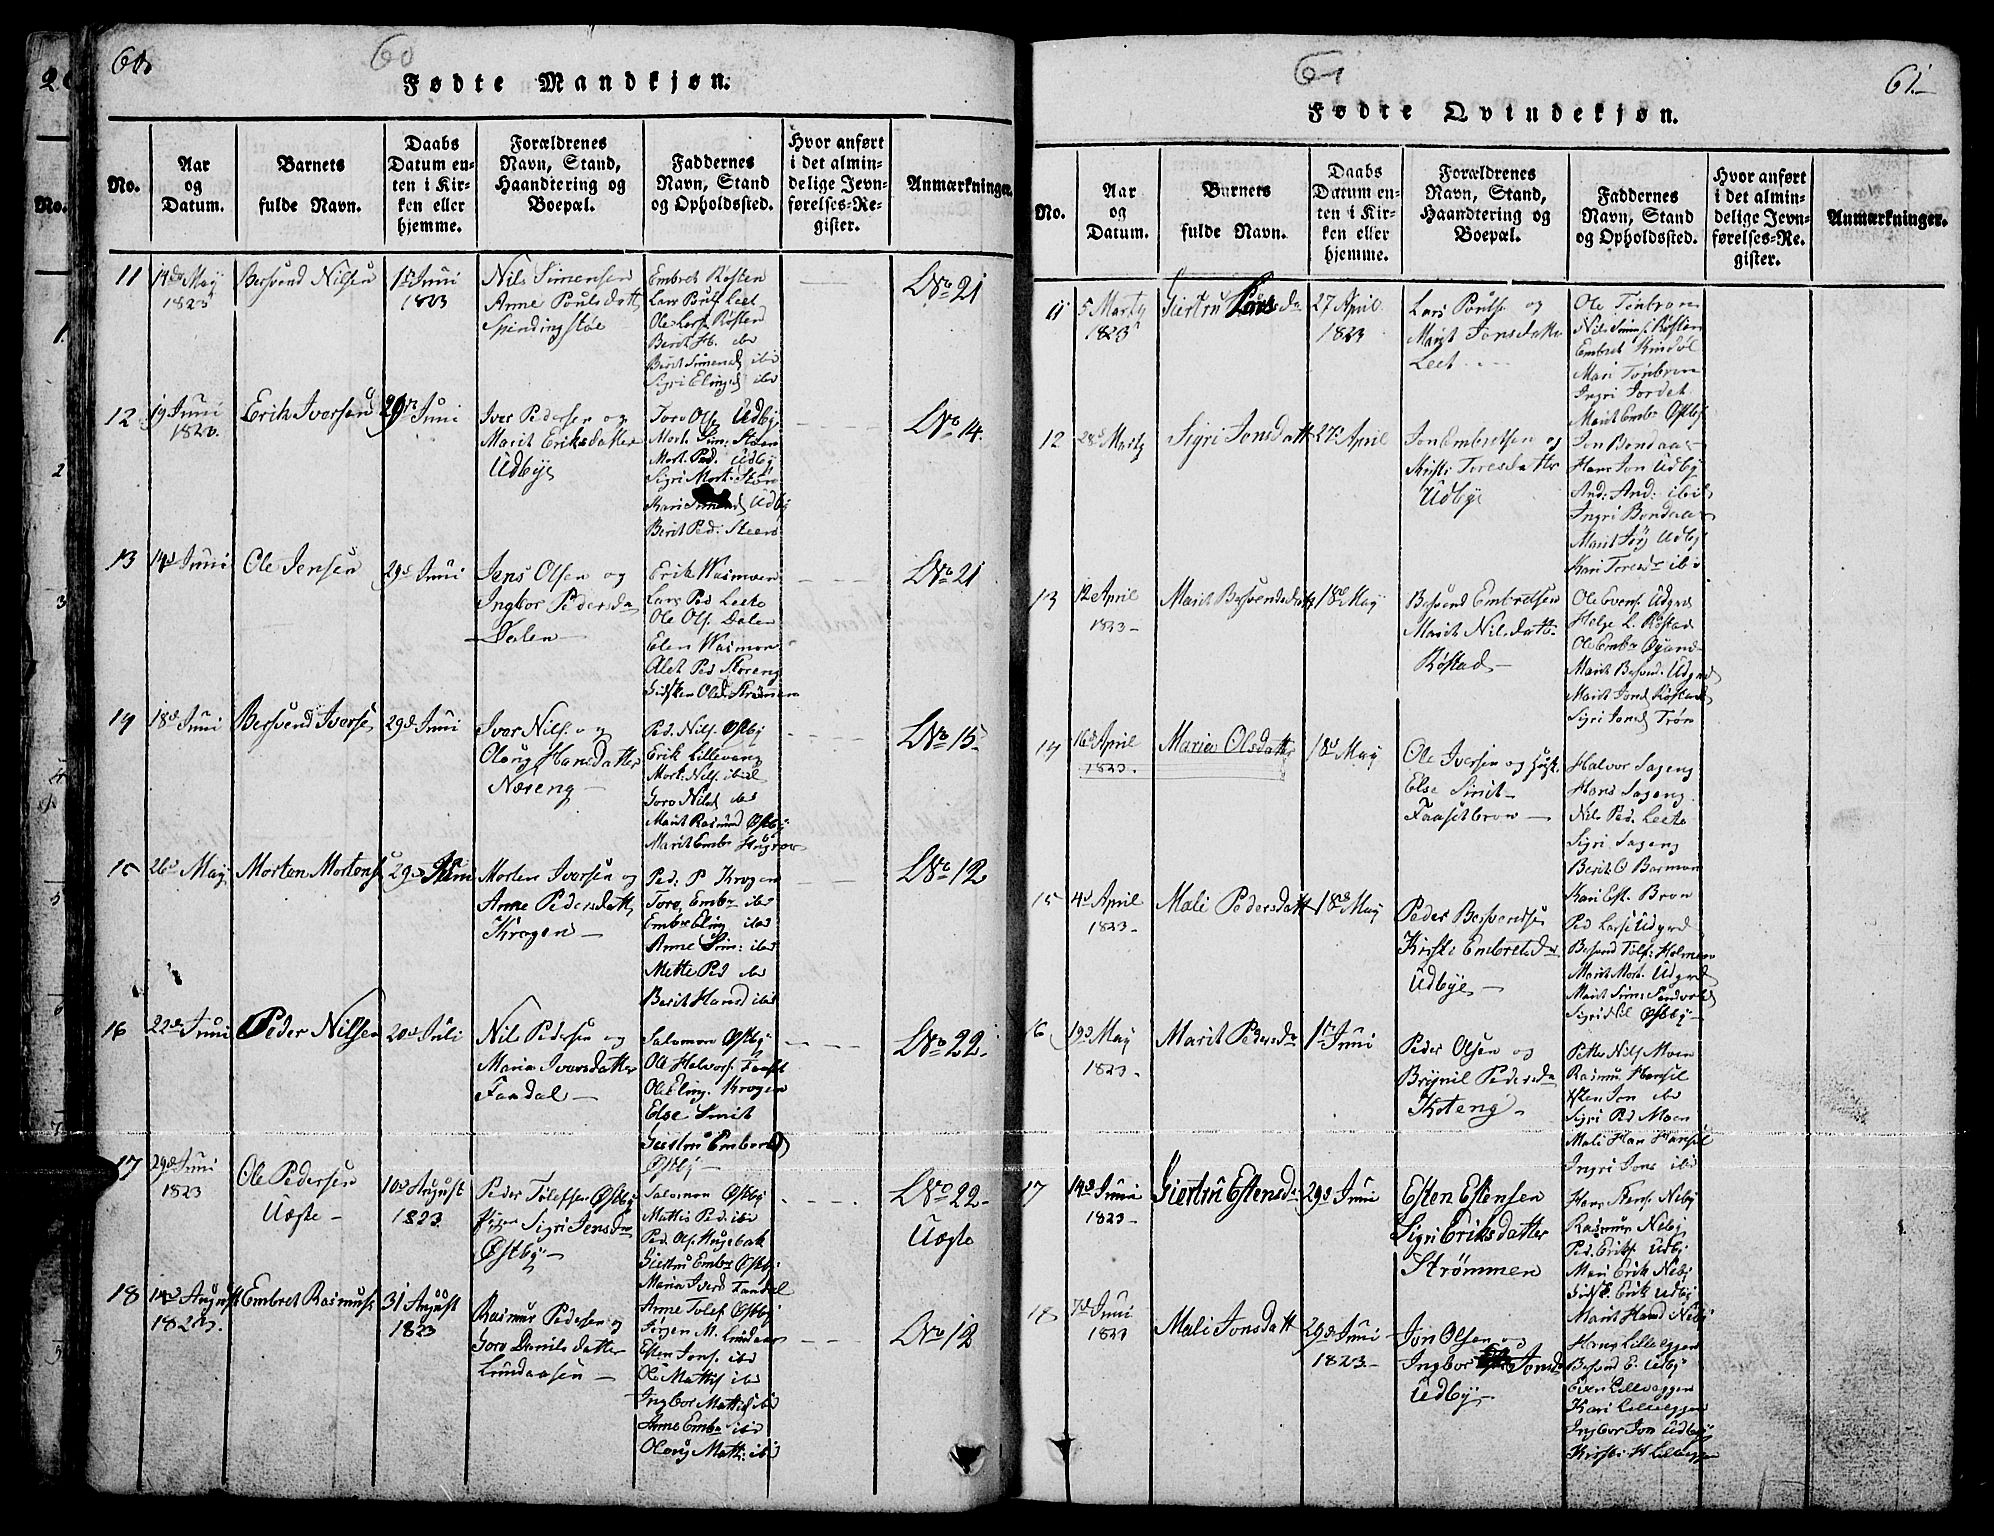 60.
60
Fødte Mandkjøn.
No.
Aar
og
Datum.
Barnets
fulde Navn.
Daabs
Datum en-
ten i Kir-
ken eller
hjemme.
Forældrenes
Navn, Stand,
Haandtering og
Boepæl.
Faddernes
Navn, Stand
og Opholdssted.
Hvor anført
i det almin-
delige Jevn-
førelses-Re-
gister.
Anmærkninger.
11
14de May
1823
Besvend Nilsen
1st Juni
1823
Nils Simensen
Anne Poulsdatt
Embret Røsten
Lars Pouls Leet
Ole Lars Røsten
Berit H. ibd
Berit Simensd ibd
Sigri Elingsd ibd
LNo 21
12
19 Juni
1823.
Erik Iversen
29 Juni
Iver Pedersen og
Marit Eriksdatter
Udbye
Toro Ols Udby
Mort. Sim: Støen
Mort. Ped. Udby
Sigri Mort. Støen
Kari Simensd Udby
Berit Ped: Støen
LNo 14.
13
14d Juni
Ole Jensen
29d Juni
Jens Olsen og
Ingbor Pedersda
Dalen
Erik Wasmoen
Lars Ped Leete
Ole Ols. Dalen
Elen Wasmoen
Alet Ped Storeng
Gidsken Olsd. Strømen
LNo 21
14
18d Juni
Besvend Iversen
29d Juni
Iver Nils. og
Olaug Hansdatter
Næreng
Ped. Nils. Østby
Erik Lillevang
Mort. Nils. ibid
Goro Nilsd ibd
Marit Rasmusd Østby
LNo 15
15
26d May
Morten Mortens
29d Juni
Morten Iversen og
Anne Pedersdatt
Krogen
Ped: P Krogen
Toro Embr ibd
Embr Eling ibd
Anne Sim: ibd
Mette Ped ibd
Berit Hansd ibd
LNo 12
16
22d Juni
Peder Nilsen
20d Juli
Nils Pedersen og
Maria Ivarsdatter
Faadal
Salomon Østby
Ole Halvors. Faaset
Ole Eling. Krogen
Else Smit
Giertru Embretsd
Østby
LNo 22
17
29d Juni
1823
Ole Pedersen
Uægte
10d August
1823
Peder Tolefsen Østby
Pigen Sigri Jensda
Østby
Salomon Østby
Mattis Ped. ibd
Ped. Ols. Hugebak
Giertru Embr Østby
Maria Iversd Faadal
Anne Tolef Østby
LNo 22
Uægte
18
14d August
1823.
Embret Rasmuss
31 August
1823
Rasmus Pedersen og
Goro Danielsdatter
Lundaasen
Jørgen M. Lundaas
Esten Jons. ibd
Ole Mattis ibd
Ingbor Mattisd ibd
Anne Embr ibd
Olaug Matt: ibd
LNo 12
61
61.
Fødte Qvindekjøn.
No.
Aar
og
Datum.
Barnets
fulde Navn.
Daabs
Datum en-
ten i Kir-
ken eller
hjemme.
Forældrenes
Navn, Stand,
Haandtering og
Boepæl.
Faddernes
Navn, Stand
og Opholdssted.
Hvor anført
i det almin-
delige Jevn-
førelses-Re-
gister.
Anmærkninger.
11
5 Marty
1823
Giertru Larsda
27 April
1823
Lars Poulse og
Marit Jonsdatter
Leet
Ole Tønbroen
Nils Simes. Røsten
Embret Kindøl
Mari Tønbroen
Ingri Jordet
Marit Embr Østby
12
28d Marty
Sigri Jonsdatt
27d April
Jon Embretsen og
Kristi Toresdatter
Udbye
Jon Bondaas
Hans Jon Udby
And: And: ibid
Ingri Bondaas
Marit Udby
Kari Toresd ibd
13
12 April
1823
Marit Besvendsdatt
18d May
Besvend Embretsen
Marit Nilsdatter
Røstad
Ole Evens. Udgrd
Helge L. Røstad
Ole Embr Øyan
Marit Besvend. Udgrd
Marit Jonsd Røstad
Sigri Jonsd Trøn
14
16d April
1823.
Maria Olsdatter
18d May
Ole Iversen og
Else Smit
Faasetbron
Halvor Sageng
Hans Sageng
Nils Ped. Leete
Sigri Sageng
Berit O Barman
Kari Est. Bron
15
4d April
1823
Mali Pedersdatt
18d May
Peder Besvendsen
Kirsti Embretsda
Udbye
Ped Larse Udgrd
Besvend Tolf: Holmen
Marit Mort. Udgrd
Marit Sim: Sandvold
Sigri Nil Østby
16
19d May
1823
Marit Pedersda
1st Juni
Peder Olsen og
Brynil Pedersda
Koteng
Petter Nils Moen
Rasmus Hansil
Esten Jon ibd
Sigri Ped Moen
Mali Han Hansil
Ingri Jons ibd
17
14d Juni
1823
Giertru Estensda
29d Juni
Esten Estensen
Sigri Eriksdatter
Strømmen
Hans Neby
Rasmus Neby
Ped. Eriks. Udby
Mari Erik Neby
Gidsk. Erik Udby
Marit Hansd Neby
18
7d Juni
1823
Mali Jonsdatt
29d Juni
1823
Jon Olsen og
Ingbor Jonsda
Udby
Hans Lilleeggen
Besvend E. Udby
Even Lilleeggen
Kari Lilleeggen
Ingbor Jon Udby
Kirsti H Lilleeggen